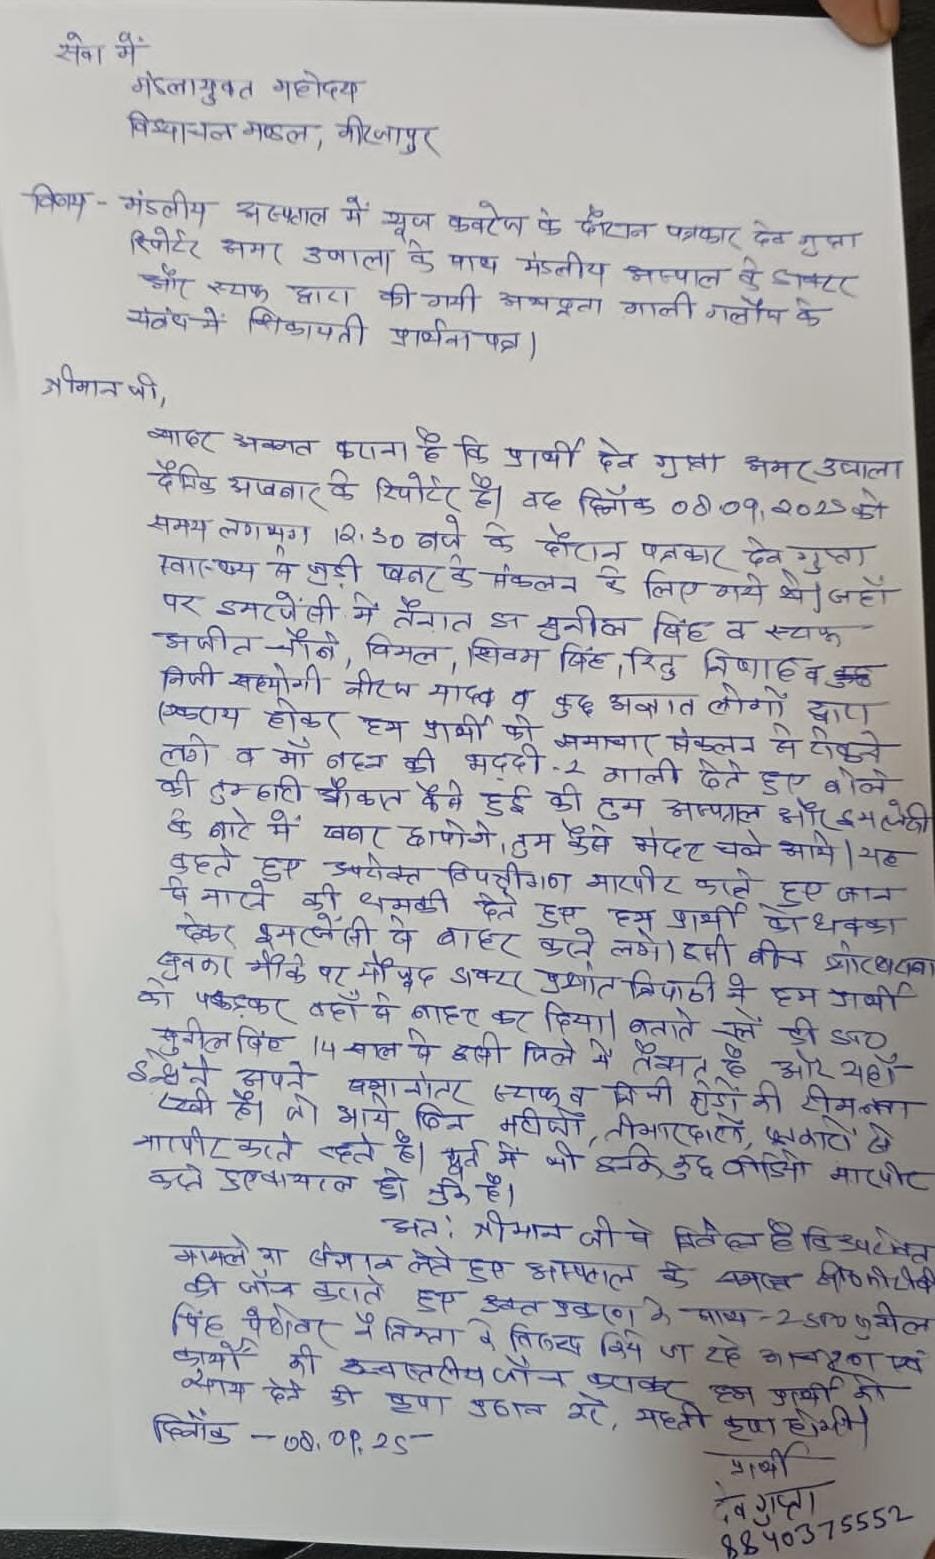 सेवा में
मंडलायुक्त महोदय
विंध्याचल मण्डल, मीरजापुर
विषय - मंडलीय अस्पताल में न्यूज कवरेज के दौरान पत्रकार देव गुप्ता
रिपोर्टर अमर उजाला के साथ मंडलीय अस्पताल के डाक्टर
और स्टाफ द्वारा की गयी अभद्रता गाली गलौज के
संबंध में शिकायती प्रार्थना पत्र।
श्रीमान जी,
सादर अवगत कराना है कि प्रार्थी देव गुप्ता अमर उजाला
दैनिक अखबार के रिपोर्टर है। वह दिनाँक 08.09.2025 को
समय लगभग 12.30 बजे के दौरान पत्रकार देव गुप्ता
स्वास्थ्य से जुड़ी खबर के संकलन के लिए गये थे। जहाँ
पर इमरजेंसी में तैनात डा सुनील सिंह व स्टाफ
अजीत चौबे, विमल, शिवम सिंह, रितु निषाद व
निजी सहयोगी नीरज यादव व कुछ अज्ञात लोगों द्वारा
एकराय होकर हम प्रार्थी को समाचार संकलन से रोकने
लगे व माँ बहन की भद्दी-2 गाली देते हुए बोले
की तुम्हारी औकात कैसे हुई की तुम अस्पताल और इमरजेंसी
के बारे में खबर छापोगे, तुम कैसे अंदर चले आये। यह
कहते हुए उपरोक्त विपक्षीगण मारपीट करते हुए जान
से मारने की धमकी देते हुए हम प्रार्थी को धक्का
देकर इमरजेंसी से बाहर करने लगे। इसी बीच शोर शराबा
सुनकर मौके पर मौजूद डाक्टर प्रशांत त्रिपाठी ने हम प्रार्थी
को पकड़कर वहाँ से बाहर कर दिया। बताते चलें की डा०
सुनील सिंह 14 साल से इसी जिले में तैनात है और यहाँ
इन्होंने अपने स्टाफ व निजी गुंडों की टीम बना
रखी है। जो आये दिन मरीजों, तीमारदारों, पत्रकारों से
मारपीट करते रहते है। पूर्व में भी इनके कुछ वीडियो मारपीट
करते हुए वायरल हो चुके है।
अतः श्रीमान जी से निवेदन है कि उपरोक्त
मामले का संज्ञान लेते हुए अस्पताल के समस्त सी०सी०टीवी
की जाँच कराते हुए उक्त प्रकरण के साथ-2 डा० सुनील
सिंह पेशेवर के विरुद्ध किये जा रहे आचरण एवं
कार्यों की उच्चस्तरीय जाँच कराकर हम प्रार्थी को
न्याय देने की कृपा प्रदान करे, महती कृपा होगी।
दिनाँक - 08.09.25
प्रार्थी
देव गुप्ता
8840375552